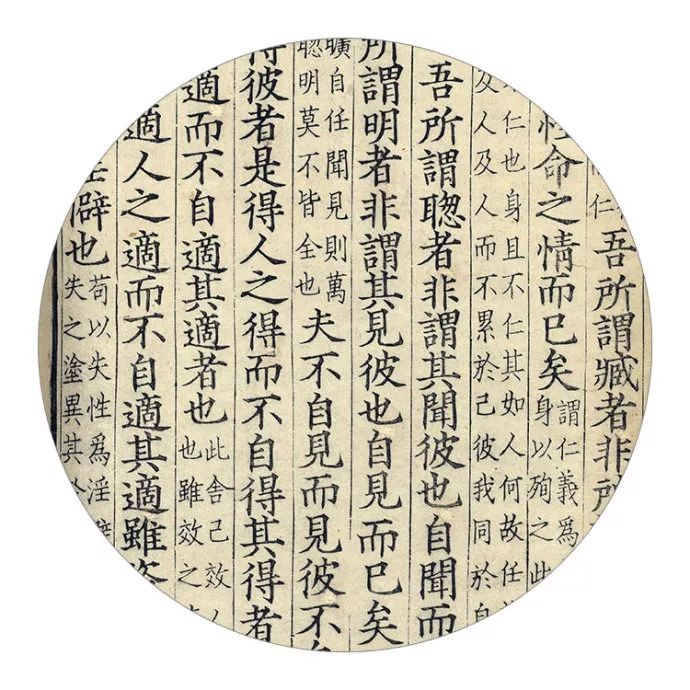 仁
吾所謂臧者非所
性命之情而已矣
謂仁義為
身以殉之此
仁也身且不仁其如人何故任
及人及人而不累於己彼我同於自
吾所謂聦者非謂其聞彼也自聞而
所謂明者非謂其見彼也自見而已矣
曠自任聞見則萬
聦明莫不皆全也
夫不自見而見彼不
得彼者是得人之得而不自得其得者
適而不自適其適者也
此舍己效人
也雖效之
適人之適而不自適其適雖
僻也
苟以失性為淫僻
失之塗異其